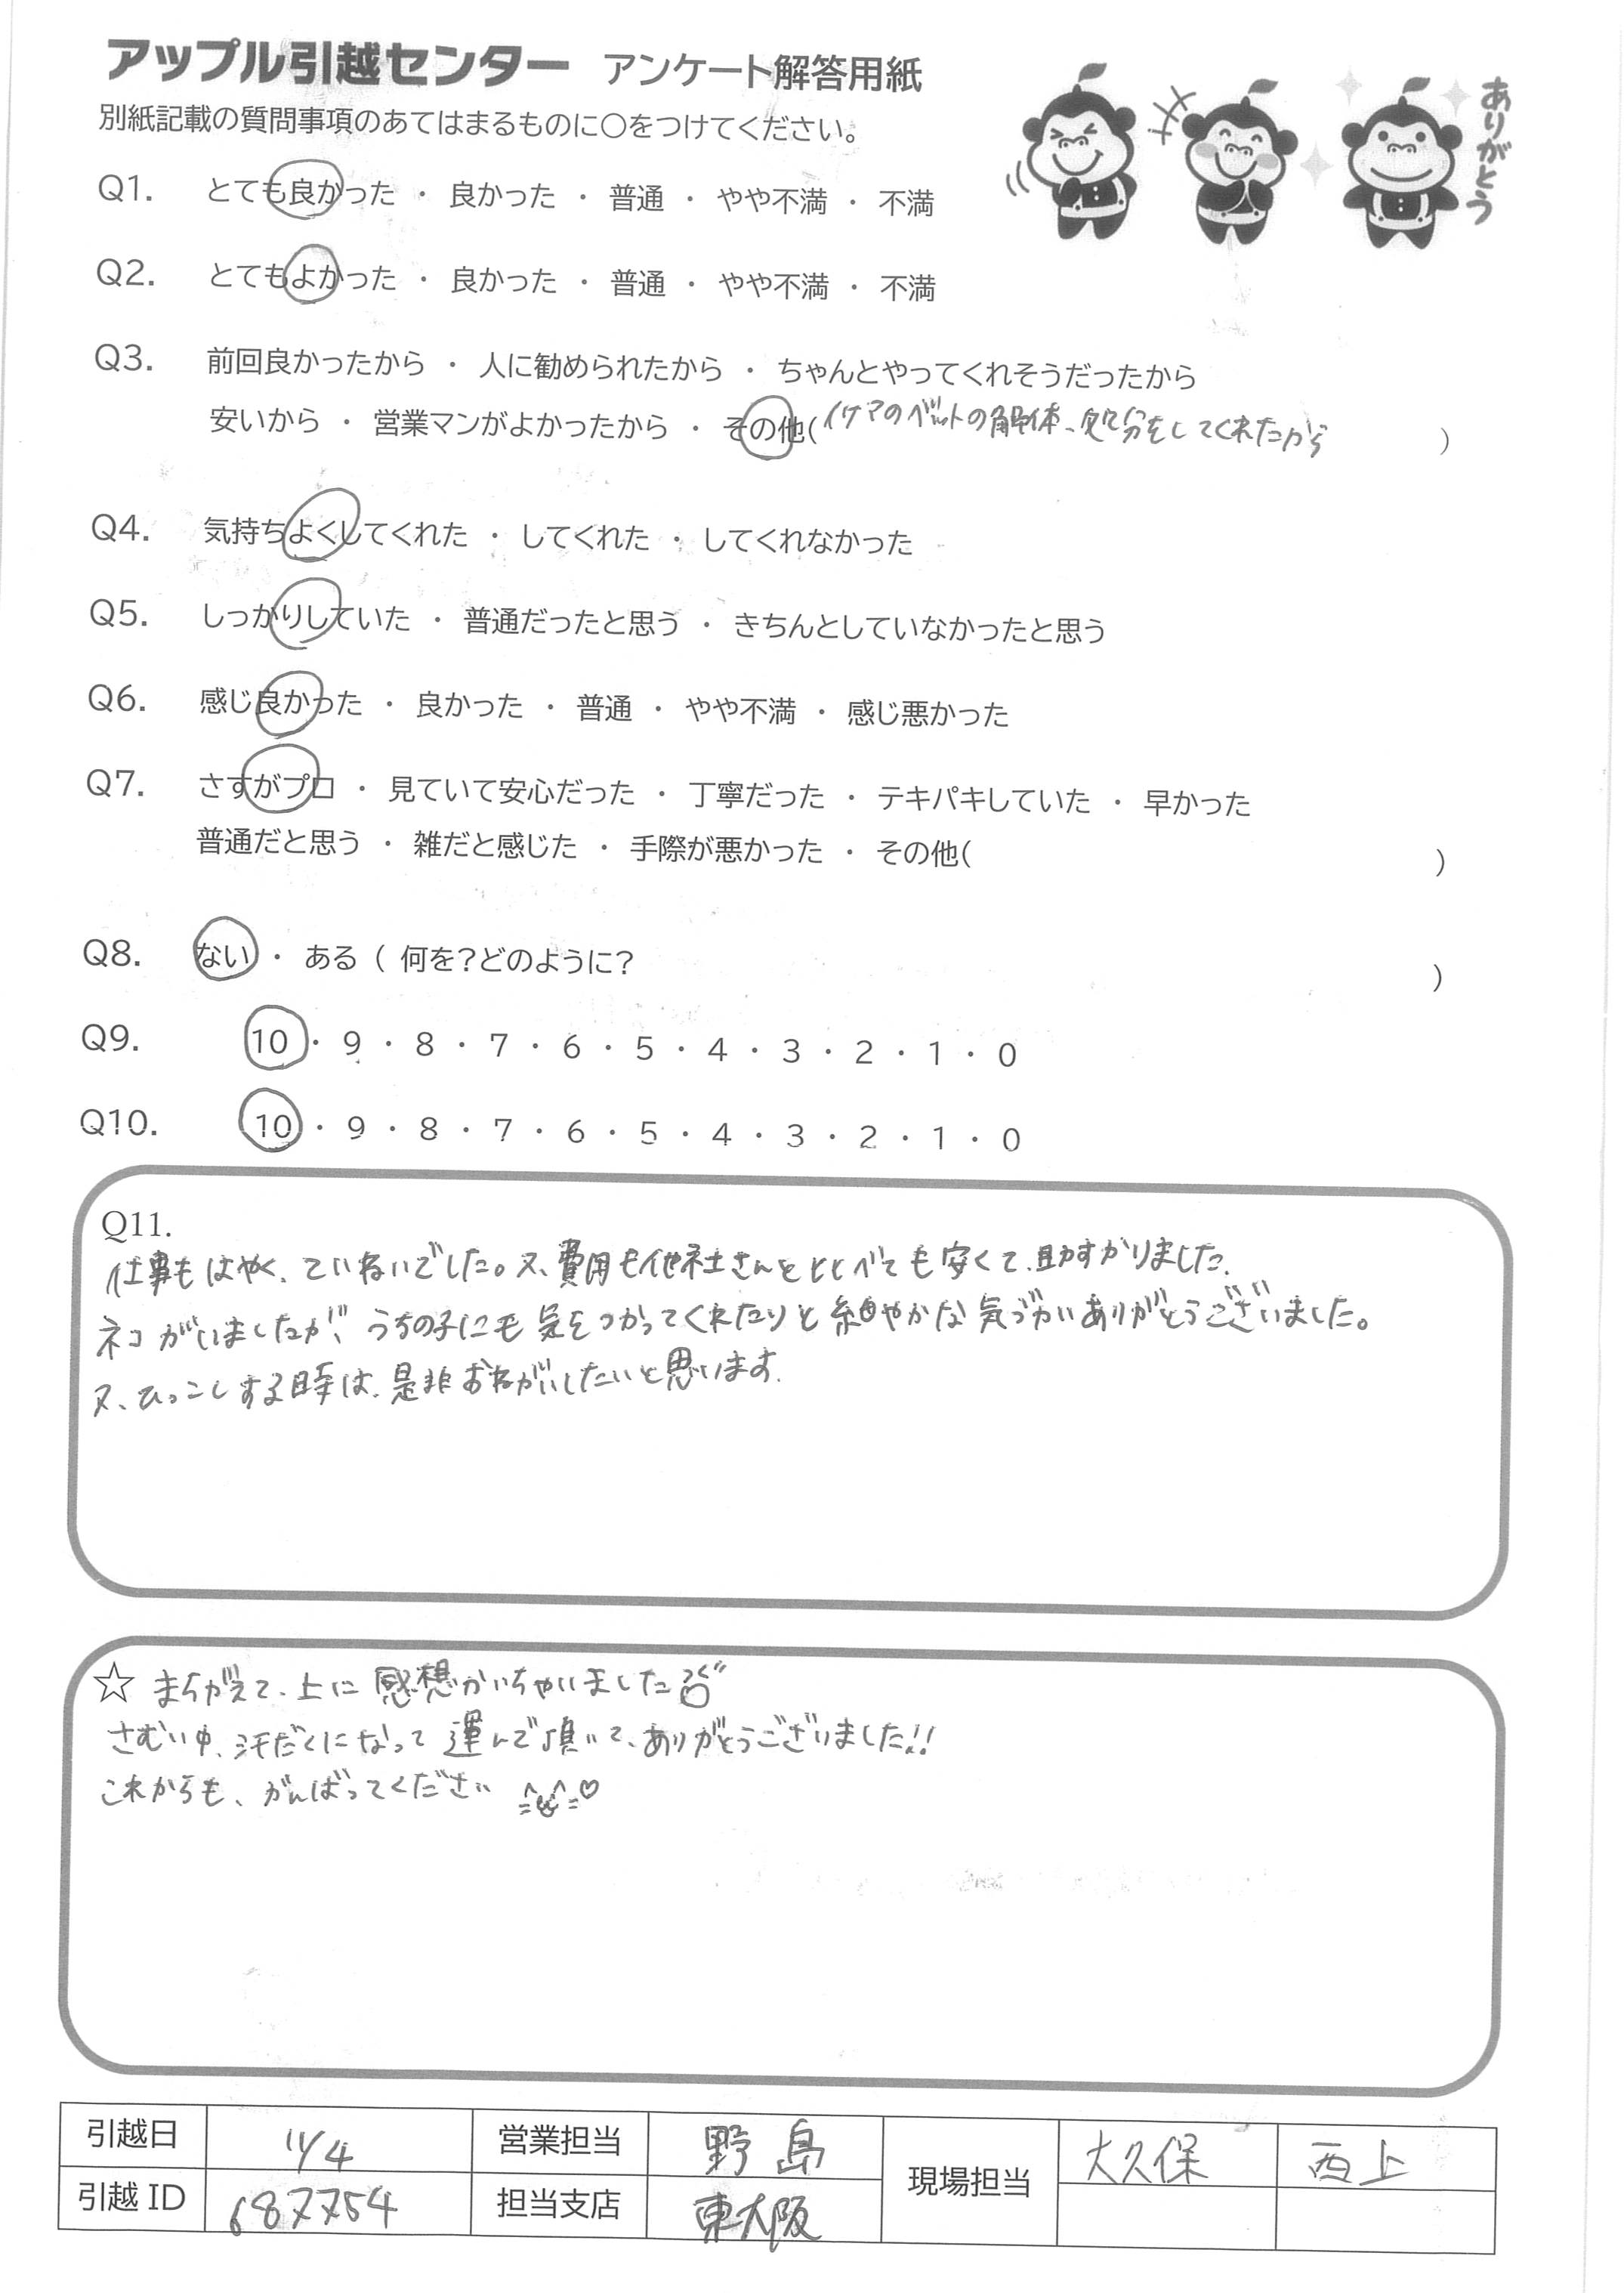 アップル引越センター アンケート解答用紙
ありがとう
別紙記載の質問事項のあてはまるものに○をつけてください。
Q1. とても良かった ・ 良かった ・ 普通 ・ やや不満 ・ 不満
Q2. とてもよかった ・ 良かった ・ 普通 ・ やや不満 ・ 不満
Q3. 前回良かったから ・ 人に勧められたから ・ ちゃんとやってくれそうだったから
安いから ・ 営業マンがよかったから ・ その他(イケアのベットの解体、処分をしてくれたから )
Q4. 気持ちよくしてくれた ・ してくれた ・ してくれなかった
Q5. しっかりしていた ・ 普通だったと思う ・ きちんとしていなかったと思う
Q6. 感じ良かった ・ 良かった ・ 普通 ・ やや不満 ・ 感じ悪かった
Q7. さすがプロ ・ 見ていて安心だった ・ 丁寧だった ・ テキパキしていた ・ 早かった
普通だと思う ・ 雑だと感じた ・ 手際が悪かった ・ その他( )
Q8. ない ・ ある ( 何を?どのように? )
Q9. 10 ・ 9 ・ 8 ・ 7 ・ 6 ・ 5 ・ 4 ・ 3 ・ 2 ・ 1 ・ 0
Q10. 10 ・ 9 ・ 8 ・ 7 ・ 6 ・ 5 ・ 4 ・ 3 ・ 2 ・ 1 ・ 0
Q11.
仕事もはやく、ていねいでした。又、費用も他社さんとくらべても安くて、助すかりました。
ネコがいましたが、うちの子にも気をつかってくれたりと細やかな気づかいありがとうございました。
又、ひっこしする時は、是非おねがいしたいと思います。
☆ まちがえて、上に感想かいちゃいました
さむい中、汗だくになって運んで頂いて、ありがとうございました!!
これからも、がんばってください ♡
引越日 11/4 営業担当 野島 現場担当 大久保 西上
引越ID 687754 担当支店 東大阪